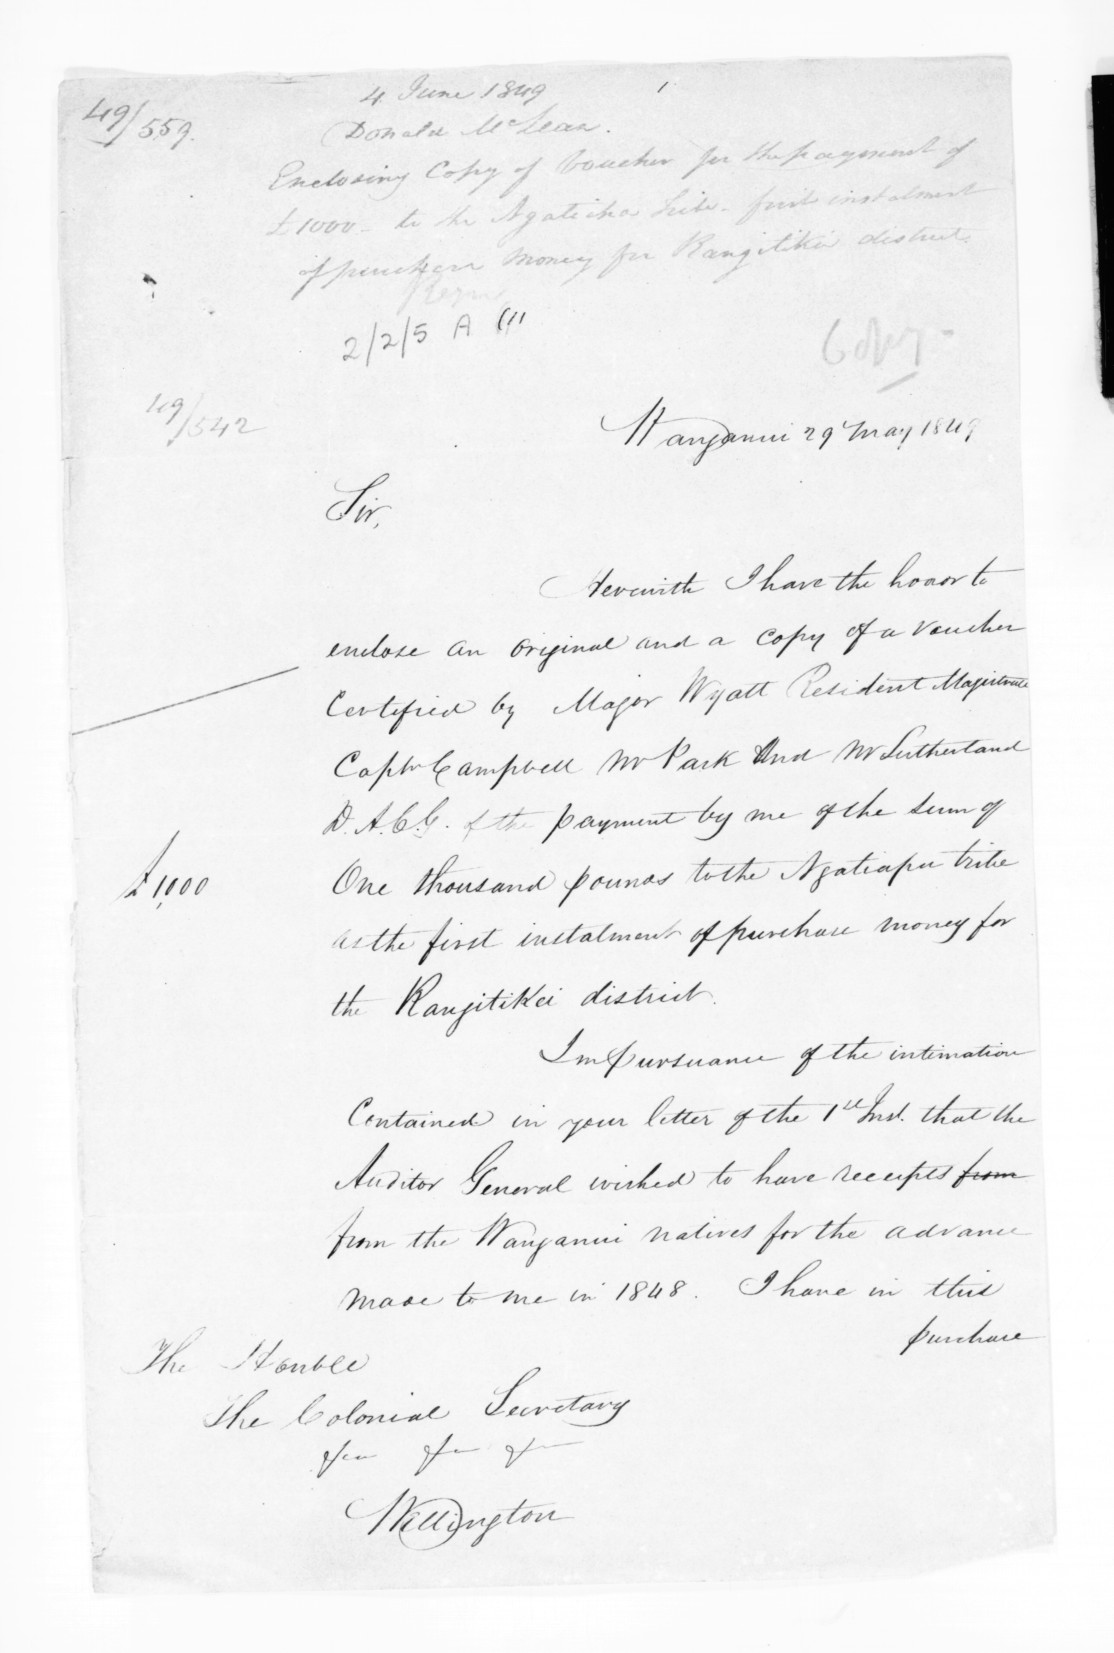 49/559.
4 June 1849
Donald McLean.
Enclosing Copy of Voucher for the payment of
£1000 - to the tribe - first instalment
of purchase money for Rangitikei district.
2/2/5 A
Copy -
49/542
Wanganui 29 May 1849
Sir,
Herewith I have the honor to
enclose an original and a copy of a voucher
Certified by Major Wyatt Resident Magistrate
Captn Campbell Mr Park And Mr Sutherland
D. A. C. G. of the payment by me of the sum of
£1,000
One thousand pounds to the Ngatiapa tribe
as the first instalment of purchase money for
the Rangitikei district.
In pursuance of the intimation
Contained in your letter of the 1st Inst. that the
Auditor General wished to have receipts from
from the Wanganui natives for the advance
made to me in 1848. I have in this
purchase
The Honble
The Colonial Secretary
&c &c &c
Wellington